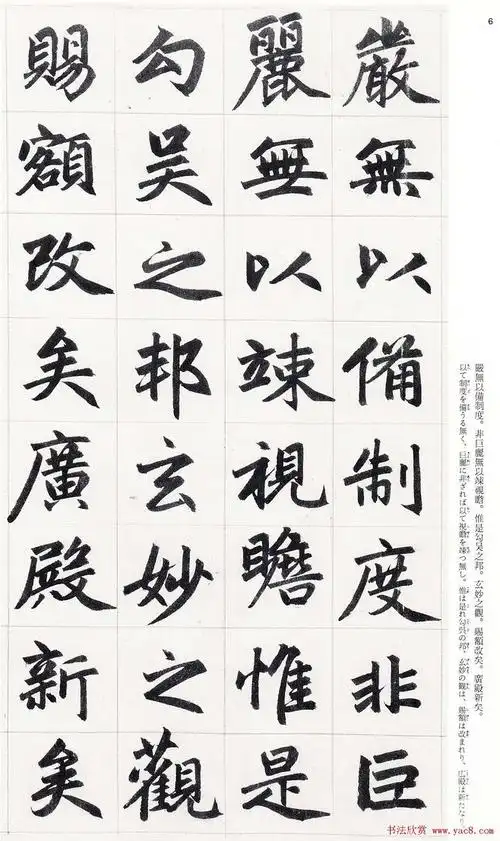 6
嚴無以備制度非巨
麗無以竦視瞻惟是
勾吴之邦玄妙之觀
賜額改矣廣殿新矣
嚴無以備制度。非巨麗無以竦視瞻。惟是勾吴之邦。玄妙之觀。賜額改矣。廣殿新矣。
以て制度を備うる無く、巨麗に非ざれば以て視瞻を竦つ無し。惟は是れ勾呉の邦、玄妙の觀は、賜額は改まれり、広殿は新たなり
书法欣赏 www.yac8.com